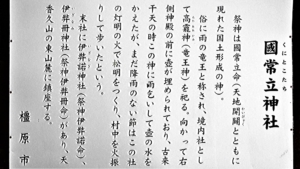 くにとこたち
國常立神社
祭神は国常立命(天地開闢とともに
現れた国土形成の神)。
俗に雨の竜王と称され、境内社とし
て高龗神(竜王神)を祀る。向かって右
側神殿の前に壺が埋められており、古来
干天の時この神に雨乞いして壺の水を
かえたが、まだ降雨のない節はこの社
の灯明の火で松明をつくり、村中を火振
りして歩いたという。
末社に伊弉諾神社(祭神伊弉諾命)、
伊弉冊神社(祭神伊弉冊命)があり、天
香久山の東山麓に鎮座する。
橿原市